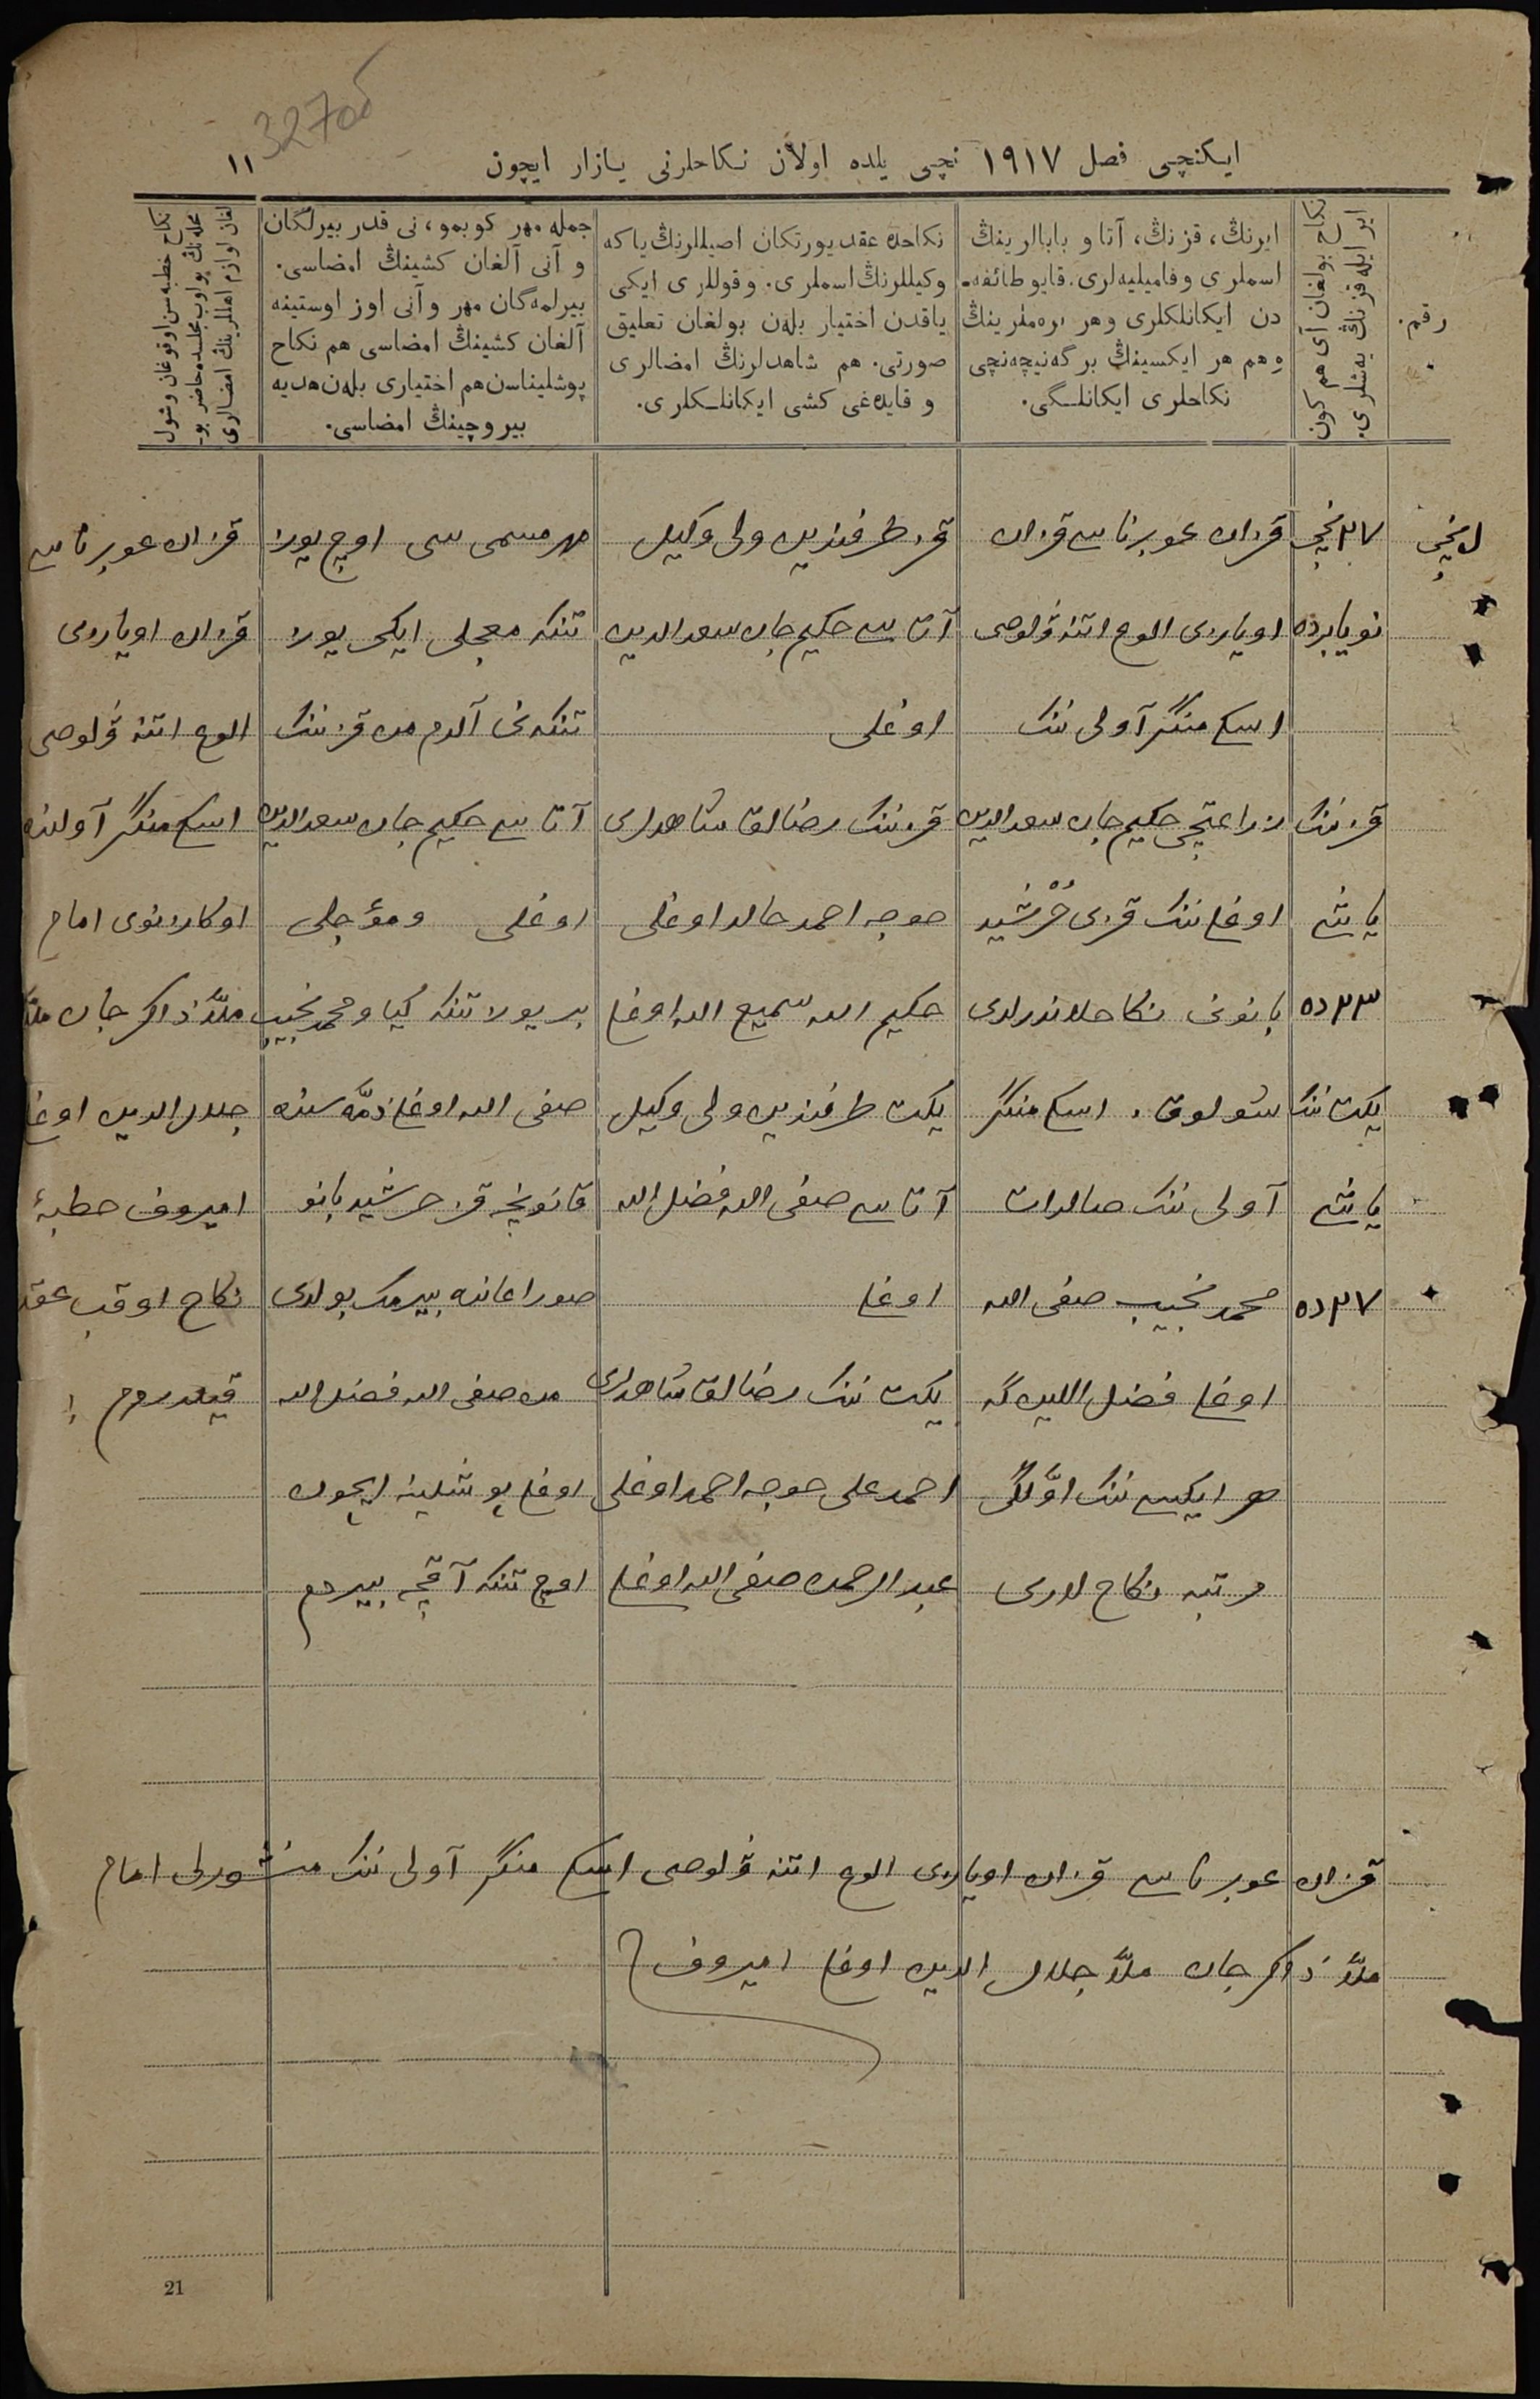 327об
ایکنچی فصل ۱۹۱۷ نچی یلده اولان نکاحلرنی یازار ایچون
۱۱
رقم.
نکاح بولغان آی هم کون
ایر ایله قزنڭ یه‌شلری.
ایرنڭ، قزنڭ، آتا و بابالرینڭ
اسملری وفامیلیه‌لری. قایو طائفه‌ـ
دن ایکانلکلری وهر
هم هر ایکسینڭ برگه‌نیچه‌نچی
نکاحلری ایکانلـگی.
نکاحده عقد یورتکان اصیللرنڭ یاکه
وکیللرنڭ اسملری. وقوللری ایکی
یاقدن اختیار بله‌ن بولغان تعلیق
صورتی. هم شاهدلرنڭ امضالری
و قایداغی کشی ایکانلـکلری.
جمله مهر کوبمو، نی قدر بیرلگان
و آنی آلغان کشینڭ امضاسی.
بیرلمه‌گان مهر وآنی اوز اوستینه
آلغان کشینڭ امضاسی هم نکاح
پوشلیناسن هم اختیاری بله‌ن هدیه
بیروچینڭ امضاسی.
نکاح خطبه‌سن اوقوغان وشول
محله‌نڭ بولوب مجلسده حاضر بو
لغان اوازم اهللرینڭ امضالری
۲۷نچی
نویابرده
قزننک
یاشی
۲۳ده
یکت ننک
یاشی
۲۷ده
قزان غوبرناسی قزان
اویازی الوغ اتنه ۋلوصی
اسکی منگر آولی ننک
زراعتچی حکیم جان سعدالدین
اوغلی ننک قزی خُرْشید
بانونی نکاحلاندرلدی
شولوق، اسکی منگر
آولی ننک صالدات
محمد نجیب صفی الله
اوغلی فضل اللین گه
هر ایکیسی ننک اوّلگی
مرتبه نکاح لاری
قز طرفندین ولی وکیل
آتاسی حکیم جان سعدالدین
اوغلی
قزننک رضالق شاهدلری
خوجه احمد خالد اوغلی
حکیم الله سمیع الله اوغلی
یکت طرفندین ولی وکیل
آتاسی صفی الله فضل الله
اوغلی
یکت ننک رضالق شاهدلری
احمد علی خوجه احمد اوغلی
عبد الرحمن صفی الله اوغلی
مهر مسمی سی اوچ یوز
تنکه معجلی ایکی یوز
تنکه نی آلدم من قزننک
آتاسی حکیم جان سعدالدین
اوغلی ومؤجلی
بر یوز تنکه کیاو محمد نجیب
صفی الله اوغلی ذمّه سنده
قانونچه قز خرشید بانو
صوراغانده بیرمک بولدی
من صفی الله فضل الله
اوغلی پوشلینه ایچون
اوچ تنکه آقچه بیردم
قزان غوبرناسی
قزان اویازی
الوغ اتنه ۋلوصی
اسکی منگر آولنده
اوکازنوی امام
ملّا ذاکر جان ملّا
جلال الدین اوغلی
امیروف خطبۀ
نکاح اوقب عقد
قیلدردم
قزان غوبرناسی قزان اویازی الوغ اتنه ۋلوصی اسکی منگر آولی ننک منشورلی امام
ملّا ذاکر جان ملّا جلال الدین اوغلی امیروف
21